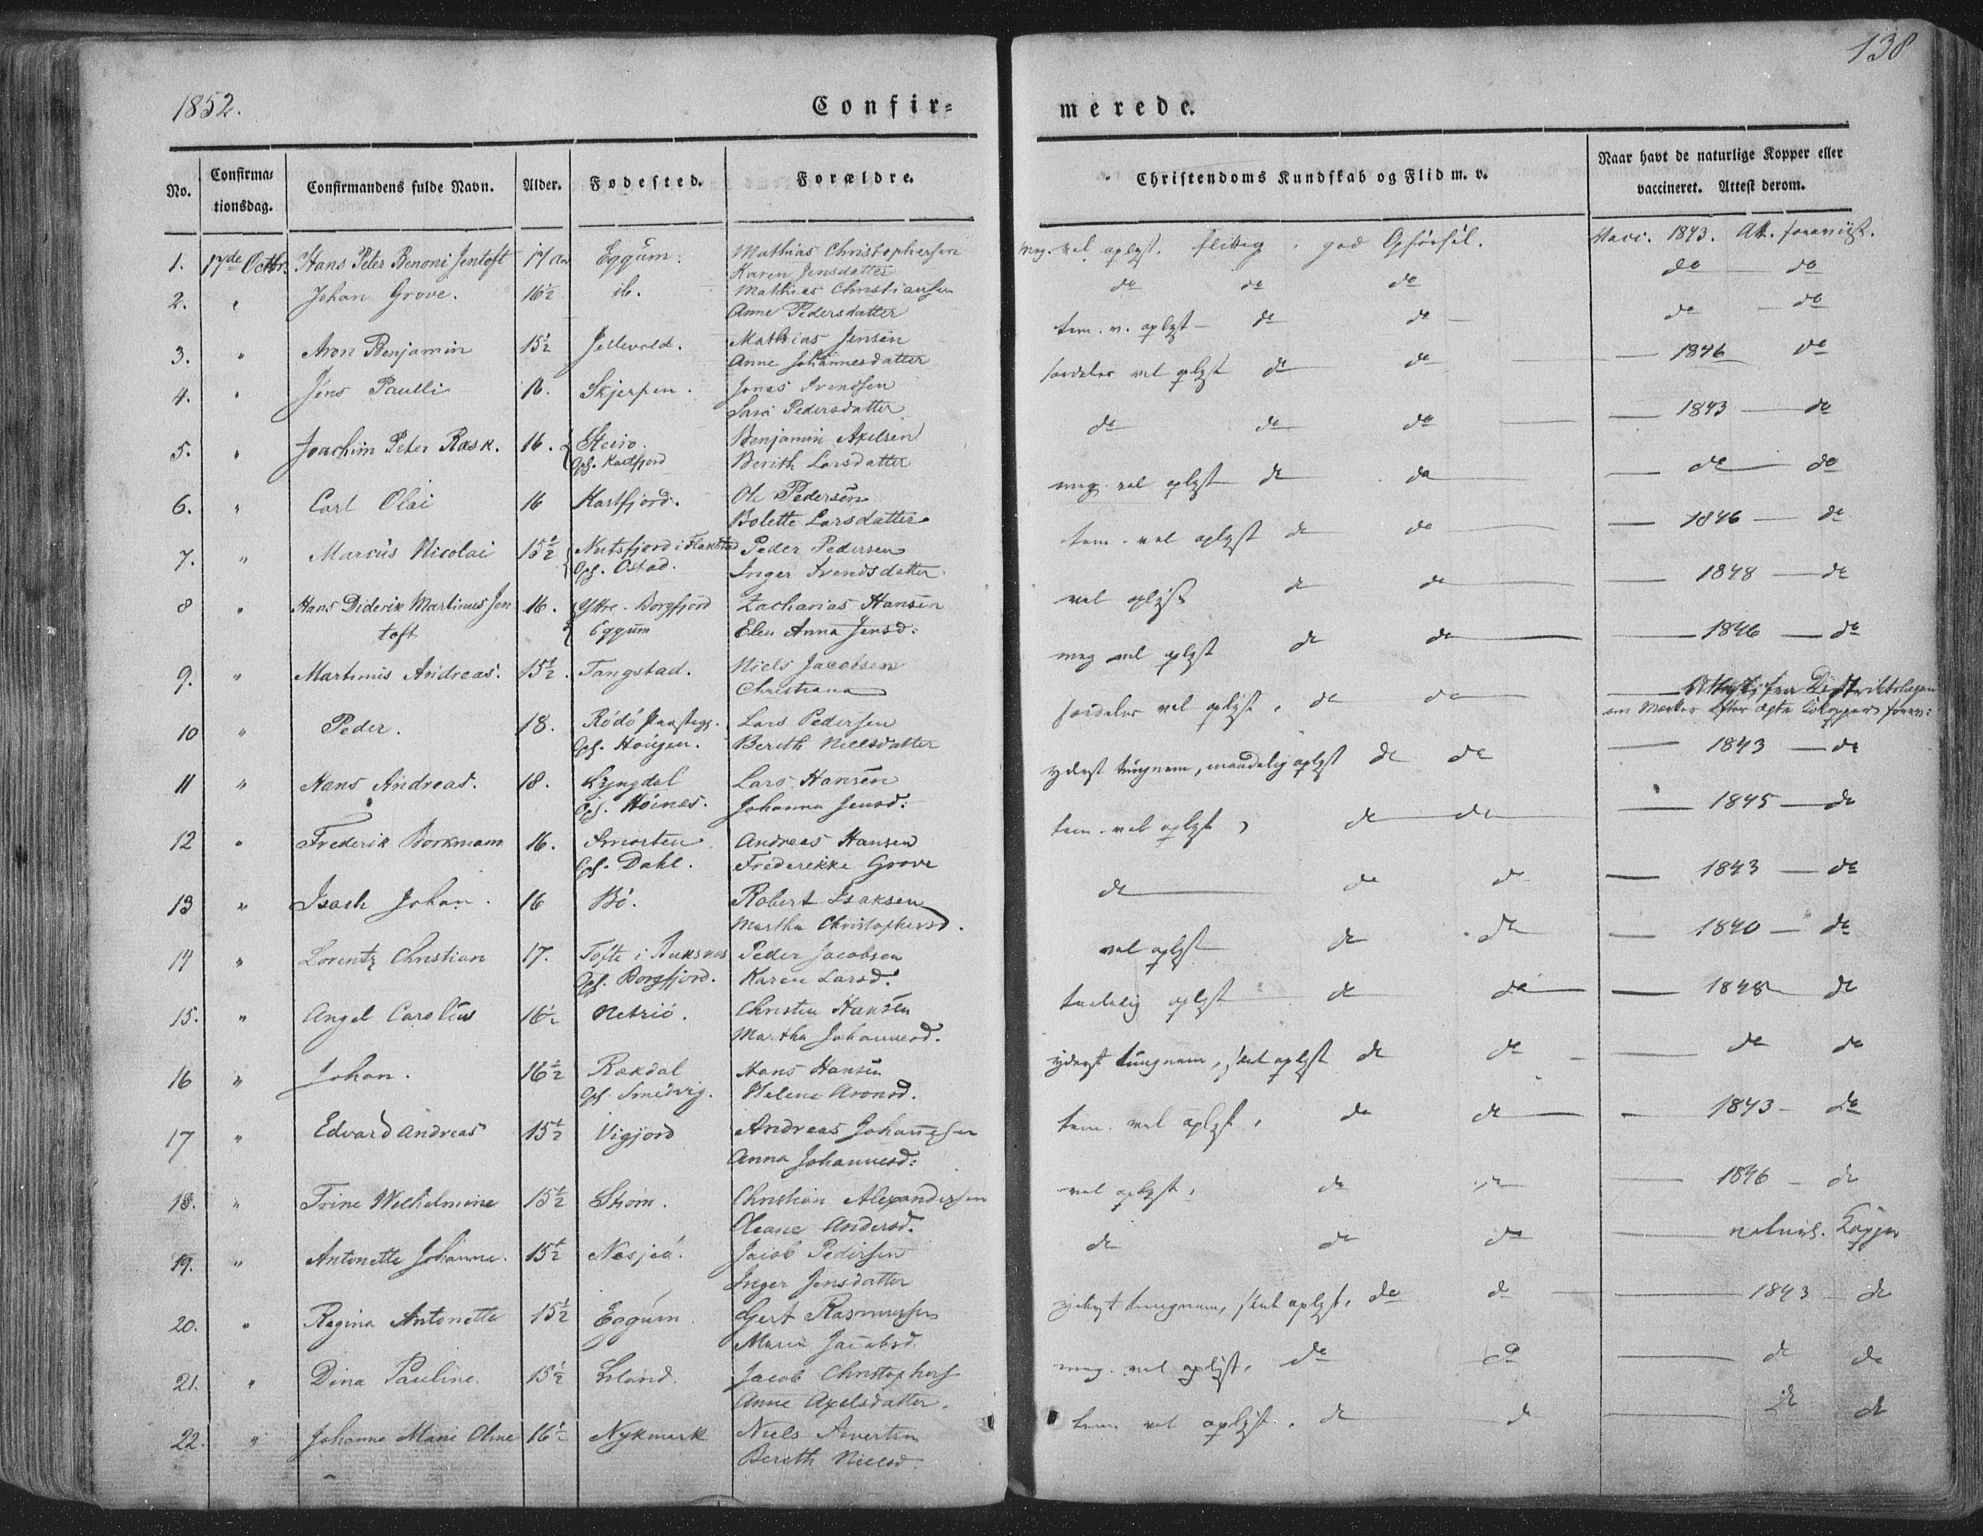 138
1852.
Confir=
merede.
No.
Confirma=
tionsdag.
Confirmandens fulde Navn.
Alder.
Fødested.
Forældre.
Christendoms Kundskab og Flid m. v.
Naar havt de naturlige Kopper eller
vaccineret. Attest derom.
1. 17de Octbr. Hans Peter Benoni Jentoft 17 Aar Eggum. Mathias Christophersen
Karen Jensdatter
meg. vel oplyst. flittig. god Opførsel. Vacc. 1843. Att. foreviist.
2. " Johan Grove. 16½ ib. Mathias Christiansen
Anne Pedersdatter
do do do do do
3. " Aron Benjamin 15½ Jellevold. Mathias Jensen
Anne Johannesdatter
tem. v. oplyst do do do do
4. " Jens Paulli 16. Skjerpen. Jonas Svendsen
Sara Pedersdatter
særdeles vel oplyst do do 1846 do
5. " Joachim Peter Rask. 16. Steiro.
Op. Kartfjord
Benjamin Axelsen
Berith Larsdatter
do do do 1843 do
6. " Carl Olai 16 Kartfjord. Ole Pedersen
Bolette Larsdatter
meg. vel oplyst do do do do
7. " Marcus Nicolai 15½ Nutsfjord i Flakstad
Op. Ostad.
Peder Pedersen
Inger Svendsdatter
tem. vel oplyst do do 1846 do
8 " Hans Diderik Martinus Jen
toft
16. Yttre-Borgfjord
Eggum
Zacharias Hansen
Elen Anna Jensd:
vel oplyst do do 1848 do
9. " Martinus Andreas. 15½. Tangstad. Niels Jacobsen
Christiana
meg vel oplyst do do 1846 do
10 " Peder. 18. Rödö Præstegj.
Op. Hougen.
Lars Pedersen
Berith Nielsdatter
særdeles vel oplyst. do do Attest fra Distriktslægen
om Mærker efter ægte Kokopper forev:
11 " Hans Andreas. 18. Lyngdal
Op. Höinæs.
Lars Hansen
Johanna Jensd:
yderst tungnem, maadelig oplyst do do 1843 do
12 " Frederik Borkmann 16. Smorten
Op. Dahl.
Andreas Hansen
Frederikke Grove
tem. vel oplyst, do do 1845 do
13 " Isach Johan. 16 Bö. Robert Isaksen
Martha Christophersd.
do do do 1843 do
14 " Lorentz Christian 17. Tofte i Buksnæs
Op. Borgfjord.
Peder Jacobsen
Karen Larsd.
vel oplyst do do 1840 do
15. " Angel Carolius 16½ Christen Hansen
Martha Johannesd.
taalelig oplyst do do 1848 do
16 " Johan. 16½ Rækdal
Op. Smedvig.
Hans Hansen
Helena Aronsd.
yderst tungnem, slet oplyst do do do do
17 " Edvard Andreas 15½ Vigjord Andreas Johannesen
Anna Johannesd:
tem. vel oplyst, do do 1843 do
18. " Trine Wilhelmine 15½ Strøm. Christian Alexandersen
Oleane Andersd.
vel oplyst, do do 1846 do
19. " Antonette Johanne. 15½ Nesjeö. Jacob Pedersen
Inger Jensdatter
do do do naturl. Kopper
20. " Regina Antonette 15½ Eggum. Gert Rasmussen
Maria Jacobsd.
yderst tungnem, slet oplyst, do do 1843 do
21. " Dina Pauline. 15½ Jacob Christophers
Anne Axelsdatter.
meg. vel oplyst, do do do do
22. " Johanna Marie Oline 16½ Nykmark Niels Sivertsen
Berith Nielsd.
tem vel oplyst. do do do do